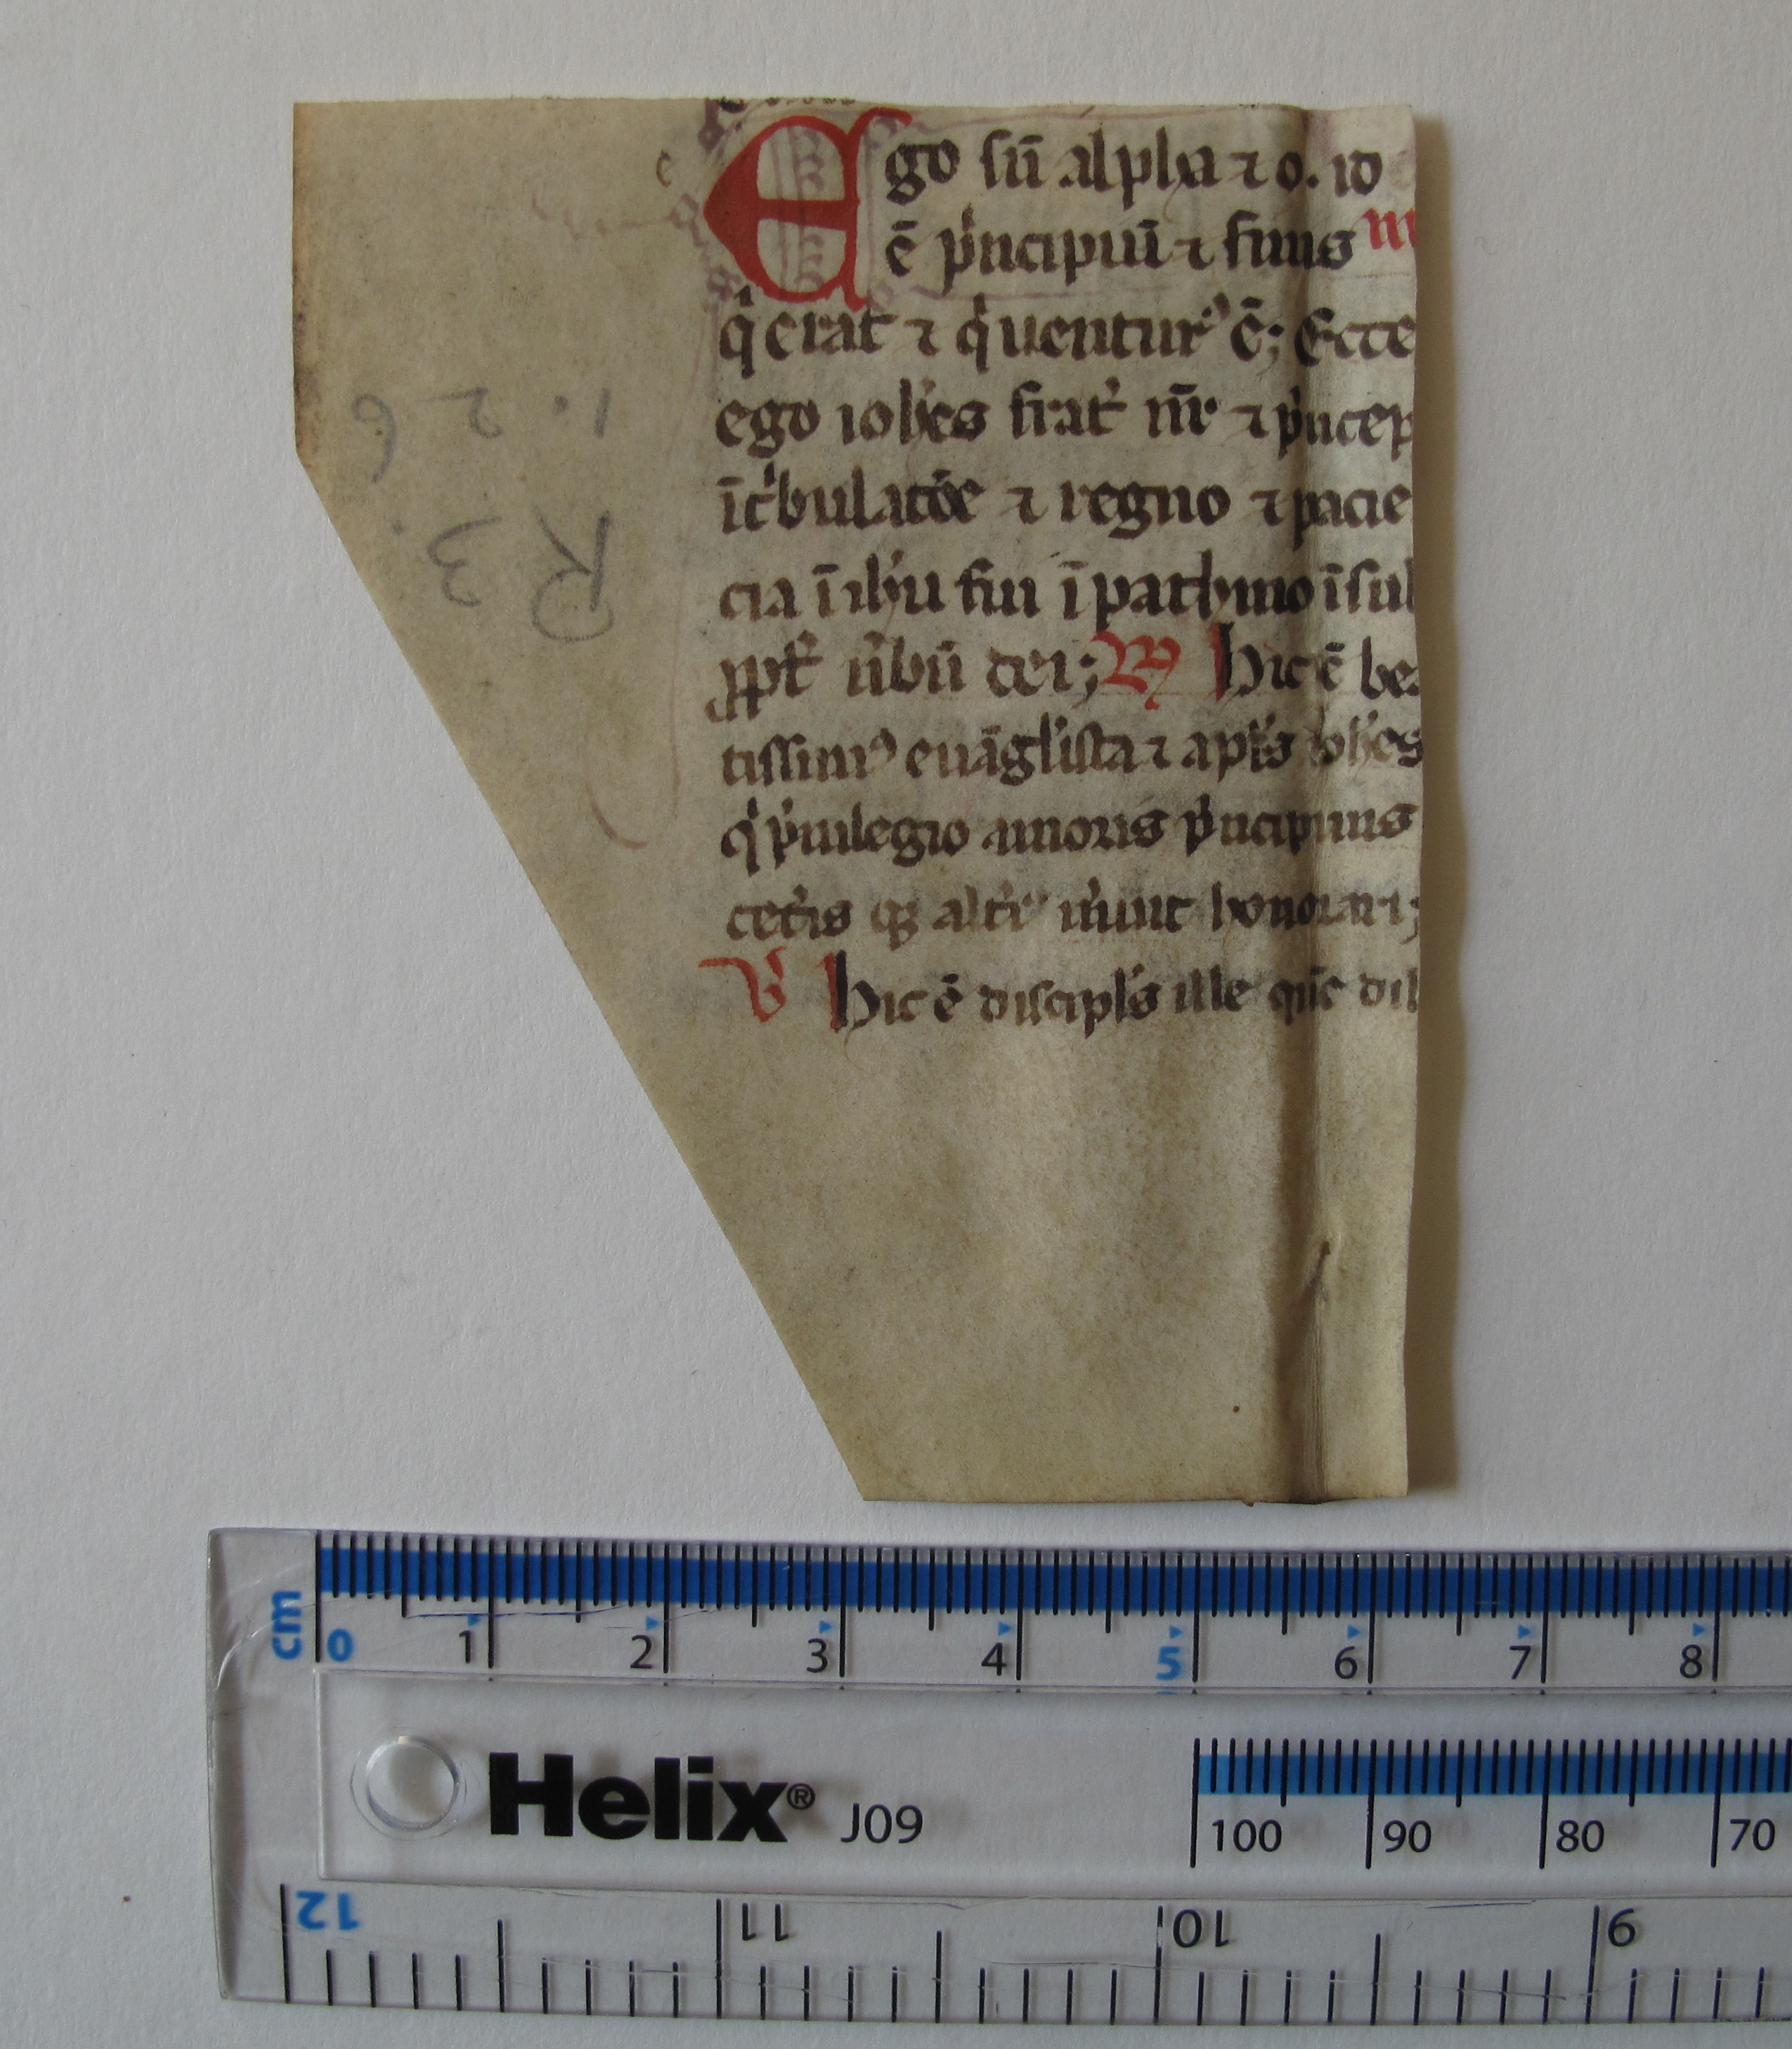 Ego sū alpha ⁊ o. io
ē p'ncipiū ⁊ finis
q' erat ⁊ q' uentur᾿ ē; Ecce
ego ioh'es frat' nr̄ ⁊ p'ncep
ī t'bulatōe ⁊ regno ⁊ pacie
cia ī ih'u fui ī pathmo īsul
ꝓpt' u'bū dei; R Hic ē bea
tissim᾿ euāgl'ista ⁊ apl's ioh'es
q' p'uilegio amoris p'ncipuus
cet'is qꝫ alti᾿ m'uit honorari;
V' Hic ē discipl's ille quē dil
1.26
R3.
cm 0 1 2 3 4 5 6 7 8
Helix® J09 100 90 80 70
12 11 10 9